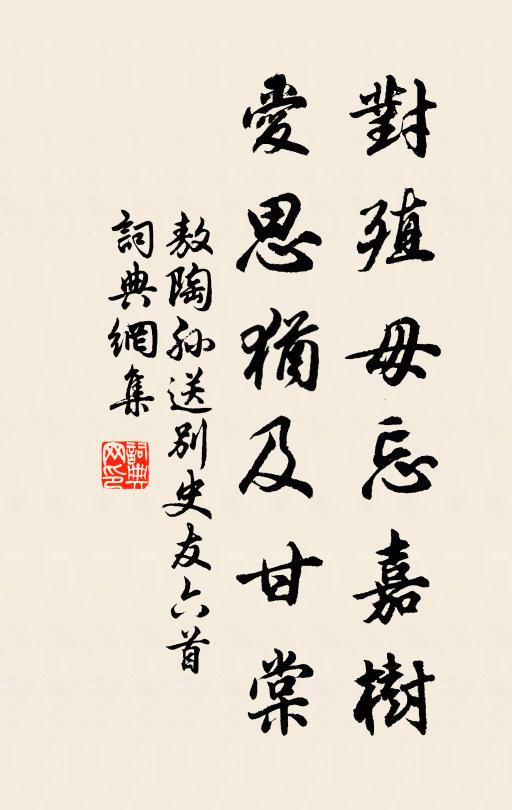 對殖毋忘嘉樹
愛思猶及甘棠
敖陶孫送別史友六首
詞典網集
詞典網印